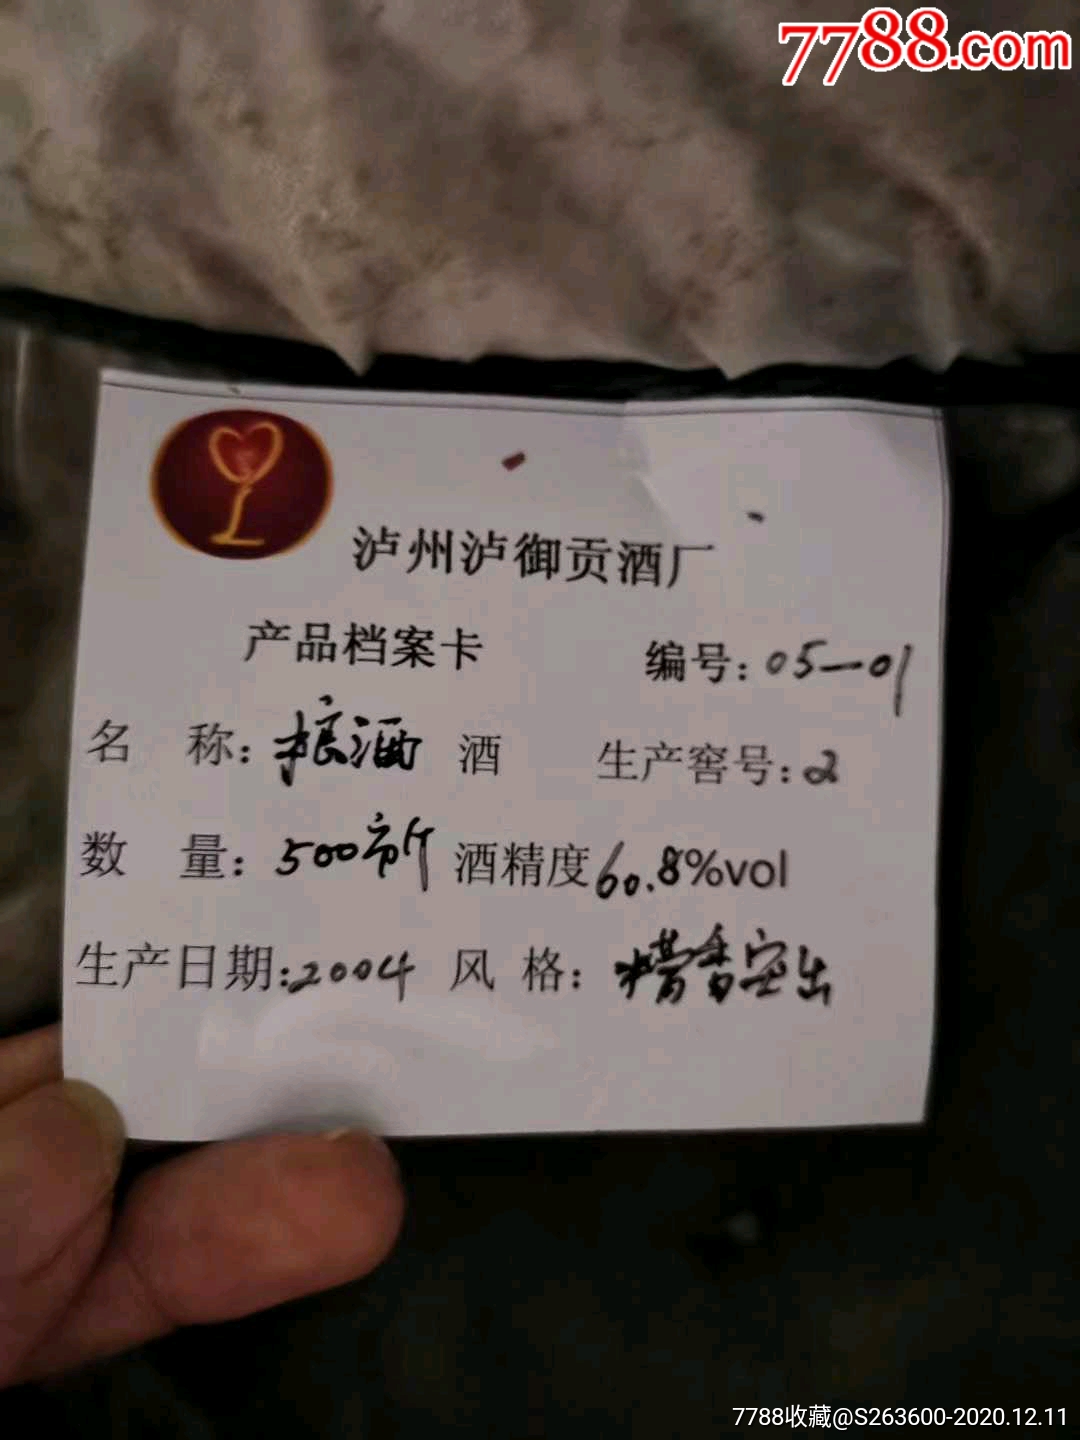 7788.com
泸州泸御贡酒厂
产品档案卡 编号:05—01
名 称:粮酒 酒 生产窖号:2
数 量:500市斤 酒精度60.8%vol
生产日期:2004 风 格:糟香突出
7788收藏@S263600-2020.12.11